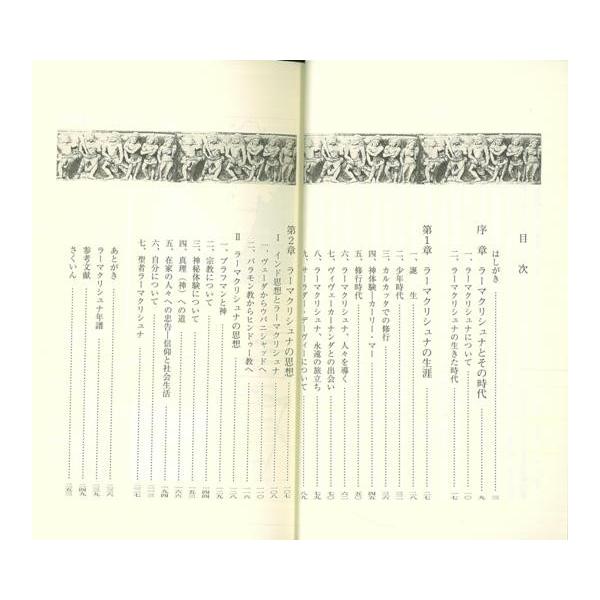 目次
はしがき
序章 ラーマクリシュナとその時代
一、ラーマクリシュナについて
二、ラーマクリシュナの生きた時代
第1章 ラーマクリシュナの生涯
一、誕生
二、少年時代
三、カルカッタでの修行
四、神体験―カーリー・マー
五、修行時代
六、ラーマクリシュナ、人々を導く
七、ヴィヴェーカーナンダとの出会い
八、ラーマクリシュナ、永遠の旅立ち
九、サーラダー・デーヴィーについて
第2章 ラーマクリシュナの思想
I インド思想とラーマクリシュナ
一、ヴェーダからウパニシャッドへ
二、バラモン教からヒンドゥー教へ
II ラーマクリシュナの思想
一、ブラフマンと神
二、宗教について
三、神秘体験について
四、真理(神)への道
五、在家の人々への忠告―信仰と社会生活
六、自分について
七、聖者ラーマクリシュナ
あとがき
ラーマクリシュナ年譜
参考文献
さくいん